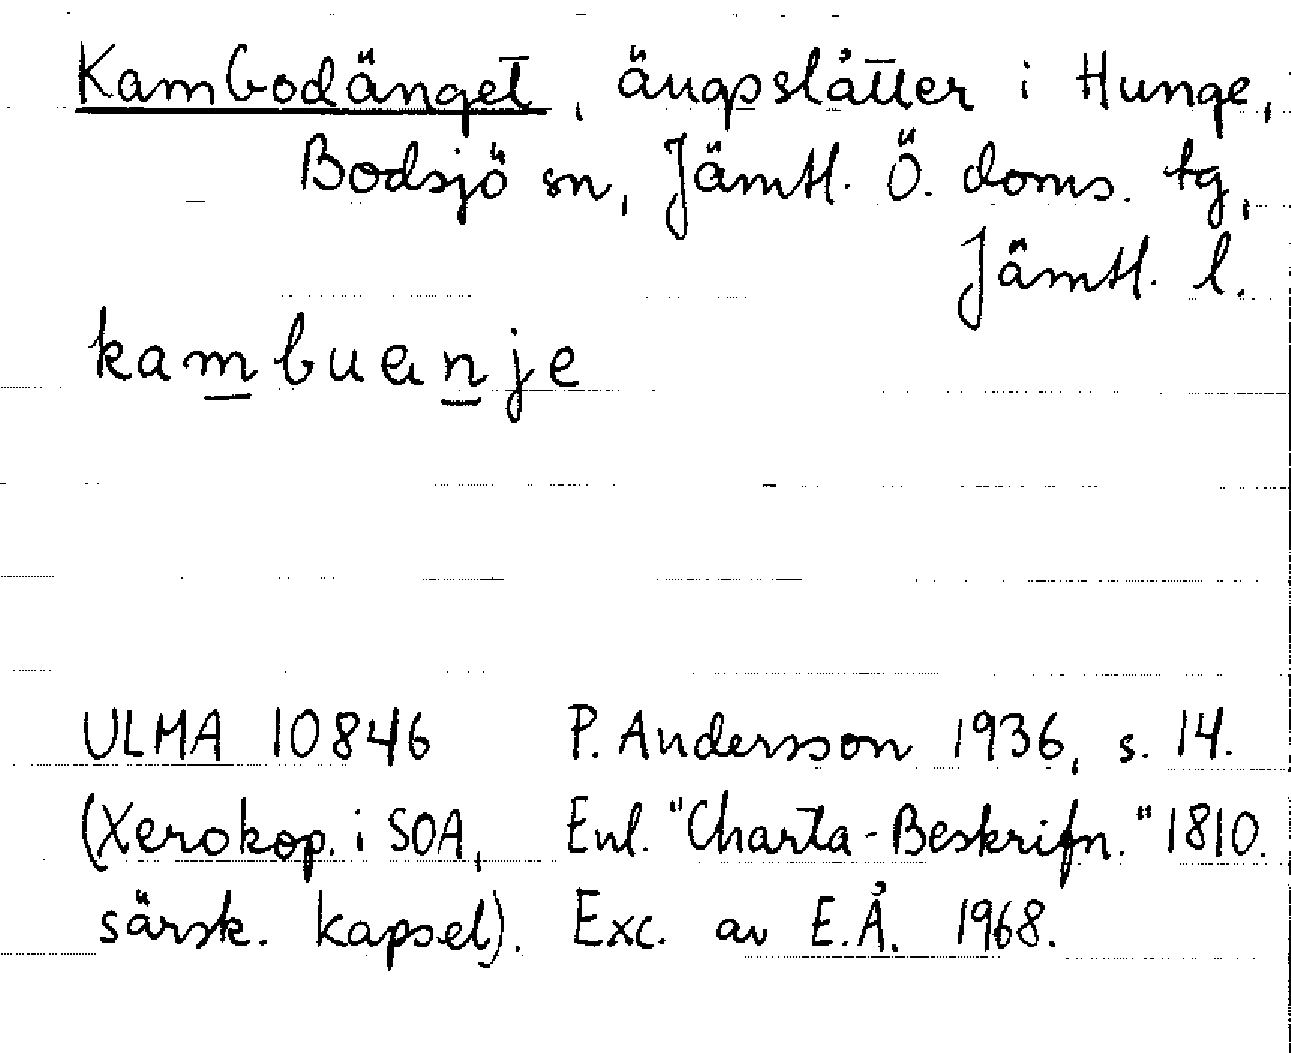 Kambodänget, ängsslåtter i Hunge,
Bodsjö sn, Jämtl. Ö. doms. tg,
Jämtl. l.
kambuanje
ULMA 10846 P. Andersson 1936, s. 14.
(Xerokop. i SOA, Enl. "Charta-Beskrifn." 1810.
särsk. kapsel). Exc. av E.Å. 1968.